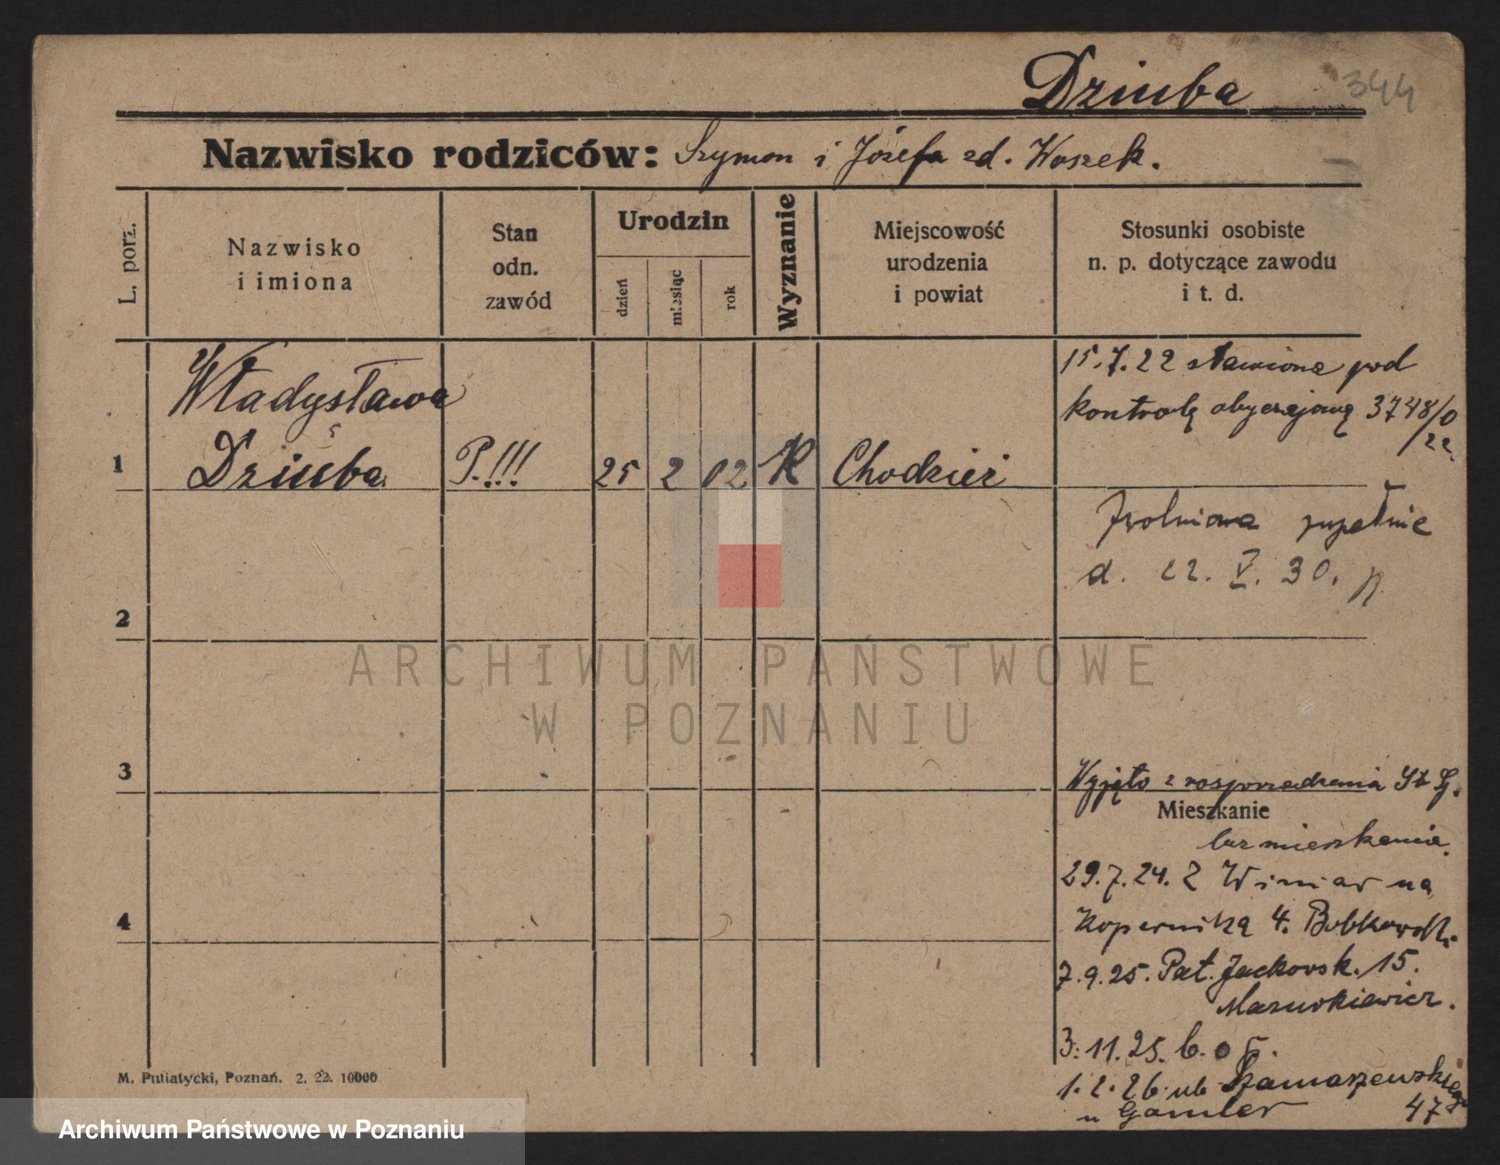 Dziuba 344
Nazwisko rodziców: Szymon i Józefa zd. Woszek.
L. porz.
Nazwisko
i imiona
Stan
odn.
zawód
Urodzin
dzień
miesiąc
rok
Wyznanie
Miejscowość
urodzenia
i powiat
Stosunki osobiste
n. p. dotyczące zawodu
i t. d.
1
Władysława
Dziuba
P.!!!
25 2 02
K
Chodzież
15.7.22 stawiona pod
kontrolę obyczajową 3748/0
/22
2
Zwolniona zupełnie
d. 22. V. 30.
3
Wyjęto z rozporządzenia
Mieszkanie
bez mieszkania.
4
29.7.24. Z Winiar na
Kopernika 4. Bobkowski
7.9.25. Pat. Jackowsk. 15.
Mazurkiewicz.
3.11.25. b. o
1.2.26. ul. Szamarzewskiego
u Gomler 47
M. Putiatycki, Poznań. 2. 22. 10000
ARCHIWUM PAŃSTWOWE
W POZNANIU
Archiwum Państwowe w Poznaniu